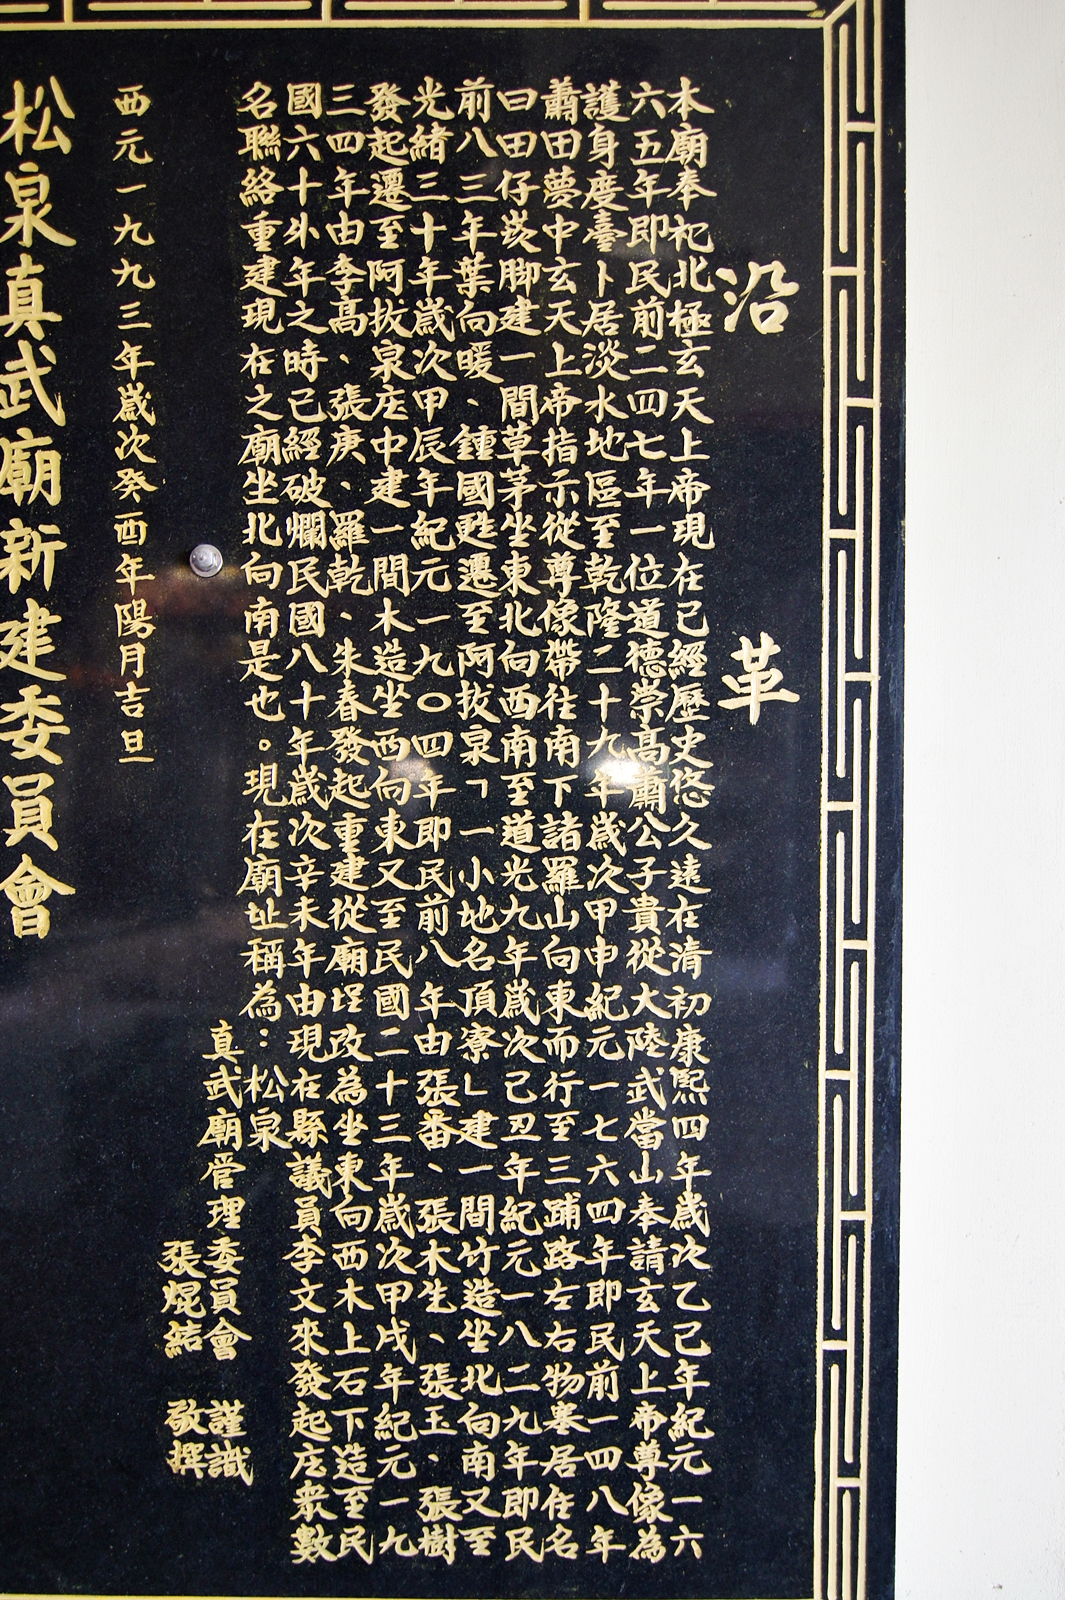 沿革
本廟奉祀北極玄天上帝現在已經歷史悠久遠在清初康熙四年歲次乙巳年紀元一六
六五年即民前二四七年一位道德崇高蕭公子貴從大陸武當山奉請玄天上帝尊像為
護身度臺卜居淡水地區至乾隆二十九年歲次甲申紀元一七六四年即民前一四八年
蕭田夢中玄天上帝指示從尊像帶往南下諸羅山向東而行至三踊路左右物寒居住名
曰田仔崁脚建一間草茅坐東北向西南至道光九年歲次己丑年紀元一八二九年即民
前八三年葉向暖、鍾國甦遷至阿拔泉「一小地名頂寮」建一間竹造坐北向南又至
光緒三十年歲次甲辰年紀元一九○四年即民前八年由張番、張木生、張玉、張樹
發起遷至阿拔泉庄中建一間木造坐西向東又至民國二十三年歲次甲戌年紀元一九
三四年由李高、張庚、羅乾、朱春發起重建從廟埕改為坐東向西木上石下造至民
國六十外年之時已經破爛民國八十年歲次辛未年由現在縣議員李文來發起庄衆數
名聯絡重建現在之廟坐北向南是也。現在廟址稱為：松泉
真武廟管理委員會 謹識
張焜結 敬撰
西元一九九三年歲次癸酉年陽月吉旦
松泉真武廟新建委員會